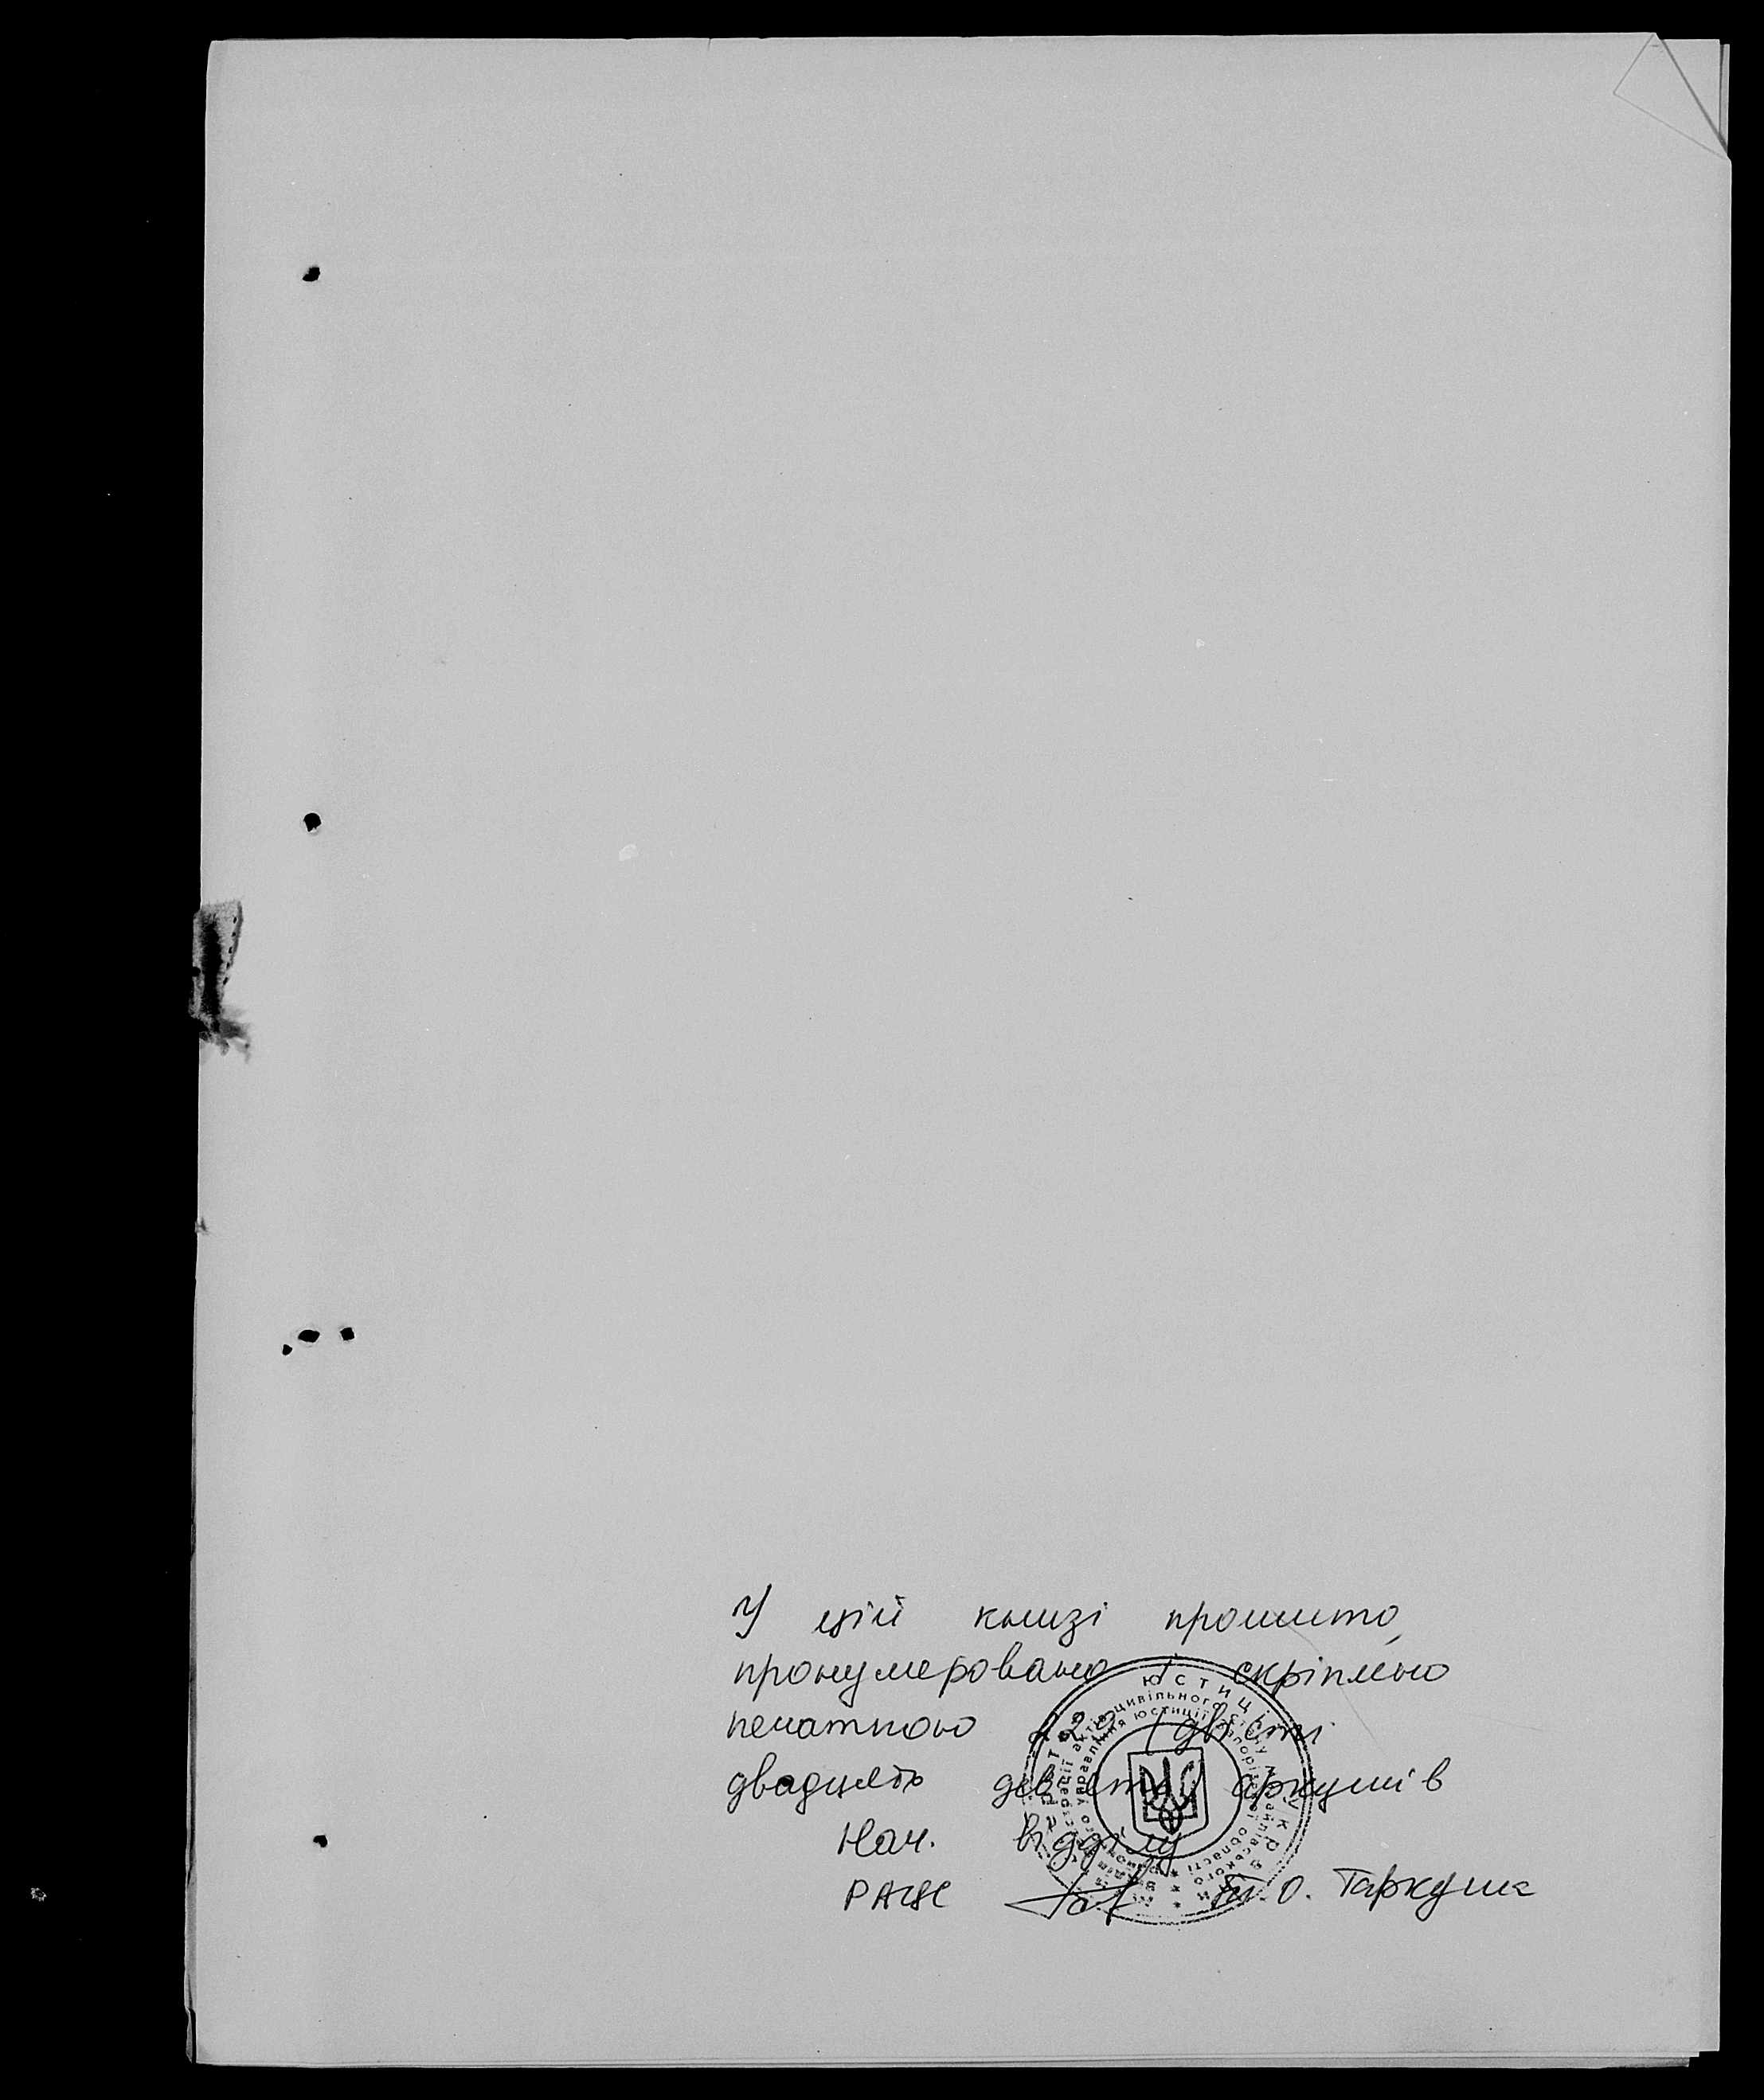 У цій книзі прошито,
пронумеровано і скріплено
печаткою 229 (двісті
двадцять дев'ять) аркушів
Нач. відділу
РАЦС Т.О. Таркуша
ЮСТИЦІЇ
актів цивільного стану
управління юстиції Запорізької області